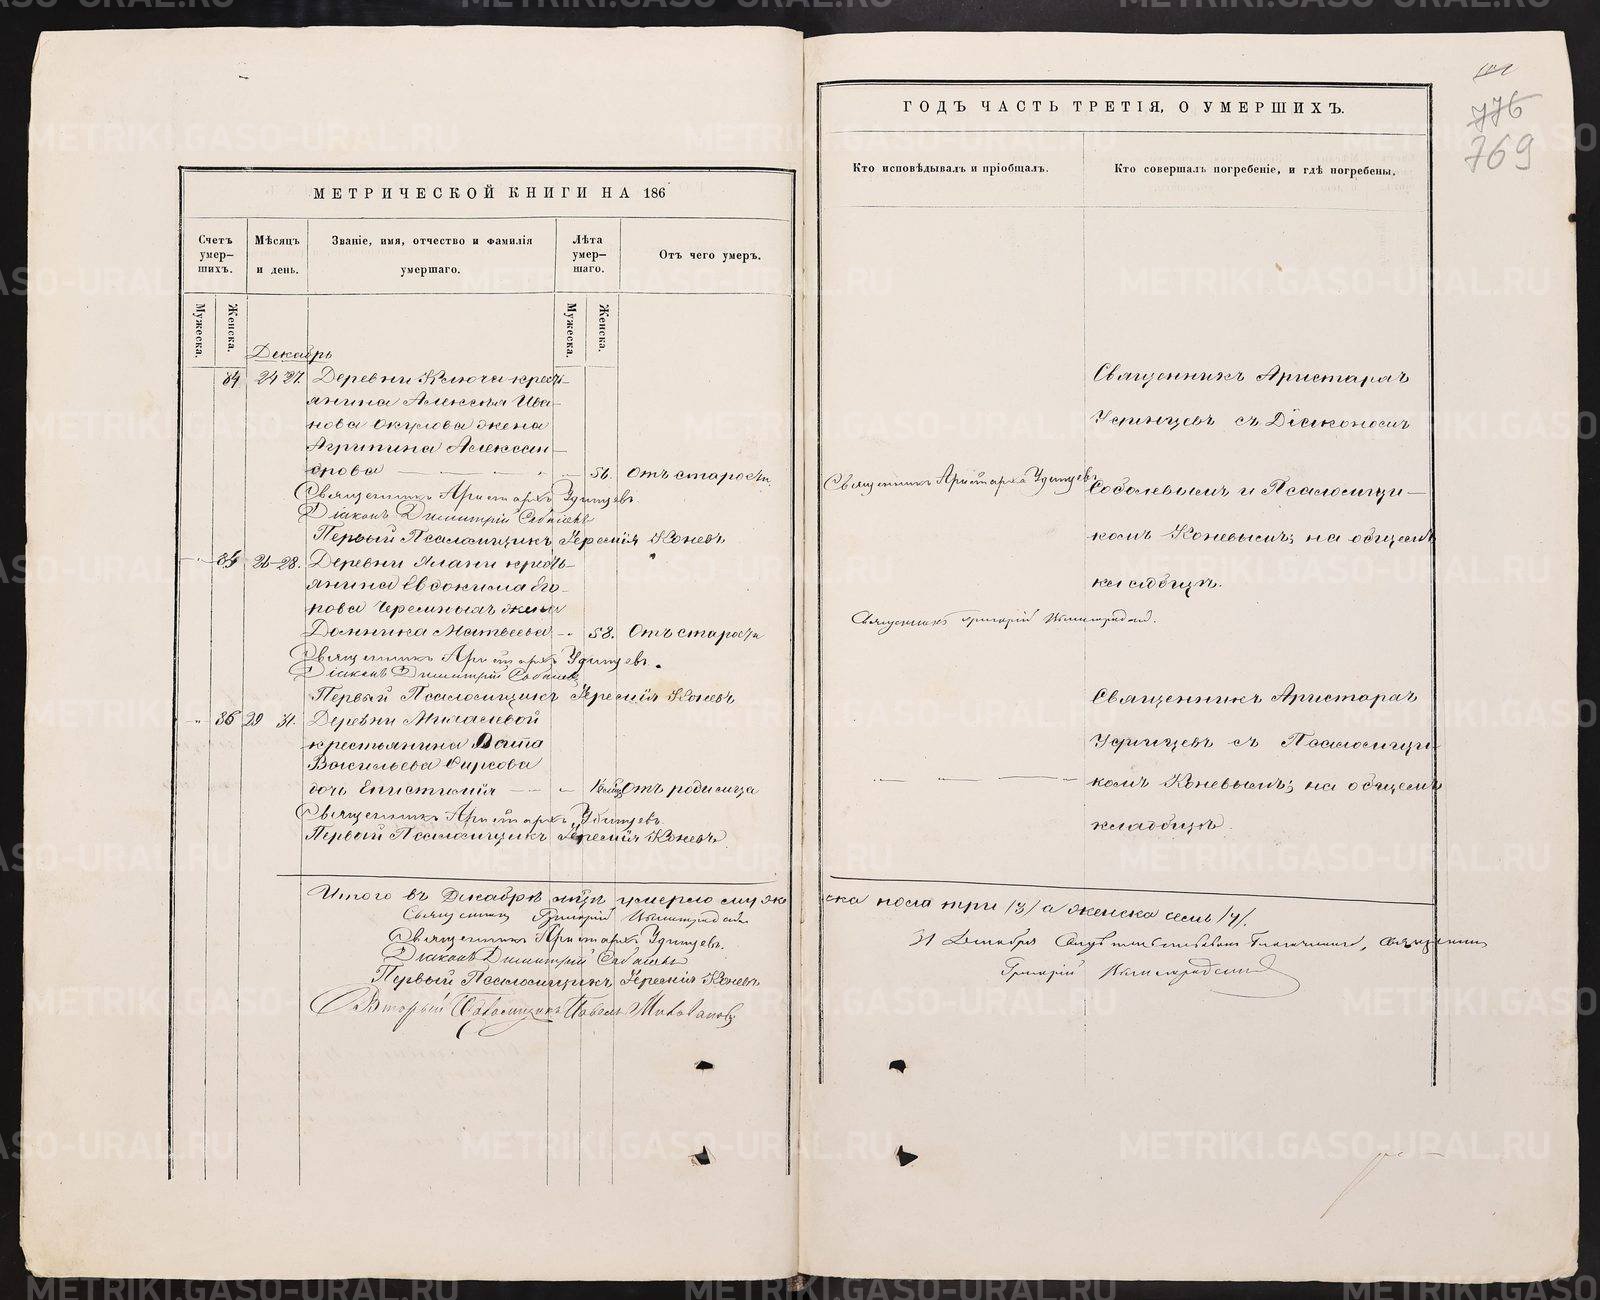 МЕТРИЧЕСКОЙ КНИГИ НА 186
Счетъ умер-шихъ.
Мужеска.
Женска.
Мѣсяцъ и день.
Званіе, имя, отчество и фамилія умершаго.
Лѣта умер-шаго.
Мужеска.
Женска.
Отъ чего умеръ.
Декабрь
84 24 27. Деревни Ключа кресть-
янина Алексѣя Ива-
нова Окулова жена
Агрипина Алексан-
дрова 56. Отъ старости
Священникъ Аристархъ Удинцевъ.
Діаконъ Димитрій Соболевъ
Первый Псаломщикъ Іеремія Коневъ
85 26 28. Деревни Ялани кресть-
янина Евдокима Его-
рова Черемныхъ жена
Домника Матвеева 58. Отъ старости
Священникъ Аристархъ Удинцевъ.
Діаконъ Димитрій Соболевъ
Первый Псаломщикъ Іеремія Коневъ
86 29 31. Деревни
крестьянина
Васильева Фирсова
дочь Епистимія Отъ родимца
Священникъ Аристархъ Удинцевъ
Первый Псаломщикъ Іеремія Коневъ
Итого въ Декабрѣ мцѣ умерло муже
Священникъ Григорій
Священникъ Аристархъ Удинцевъ.
Діаконъ Димитрій Соболевъ
Первый Псаломщикъ Іеремія Коневъ
Второй Псаломщикъ Павелъ
ГОДЪ ЧАСТЬ ТРЕТІЯ, О УМЕРШИХЪ.
776
769
Кто исповѣдывалъ и пріобщалъ.
Кто совершалъ погребеніе, и гдѣ погребены.
Священникъ Аристархъ
Удинцевъ съ Діакономъ
Священникъ Аристархъ Удинцевъ
Соболевымъ и Псаломщи-
комъ Коневымъ; на общемъ
кладбищѣ.
Священникъ Григорій
Священникъ Аристархъ
Удинцевъ съ Псаломщи-
комъ Коневымъ; на общемъ
кладбищѣ.
ска пола три /3/ а женска семь /7/.
31 Декабря
Григорій
METRIKI.GASO-URAL.RU